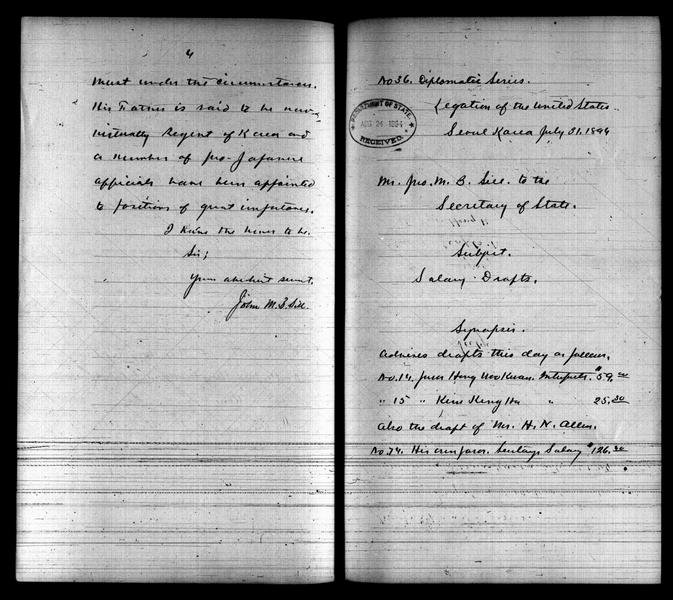 4
ment under the circumstances.
His Father is said to be now
virtually Regent of Korea and
a number of pro-Japanese
officials have been appointed
to positions of great importance.
I have the honor to be,
Sir;
Your obedient servt.
John M. B. Sill.
No 36. Diplomatic Series.
Legation of the United States
Seoul Korea July 31. 1894
DEPARTMENT OF STATE.
AUG 24 1894
RECEIVED.
Mr. Jno. M. B. Sill. to the
Secretary of State.
Subject.
Salary Drafts.
Synopsis.
Advises drafts this day as follows,
No. 14. favor Hong Woo Kwan. Interpreter. $59.
" 15 " Kim " 25.50
Also the draft of Mr. H. N. Allen.
No. 74. His own favor. Salary $126.